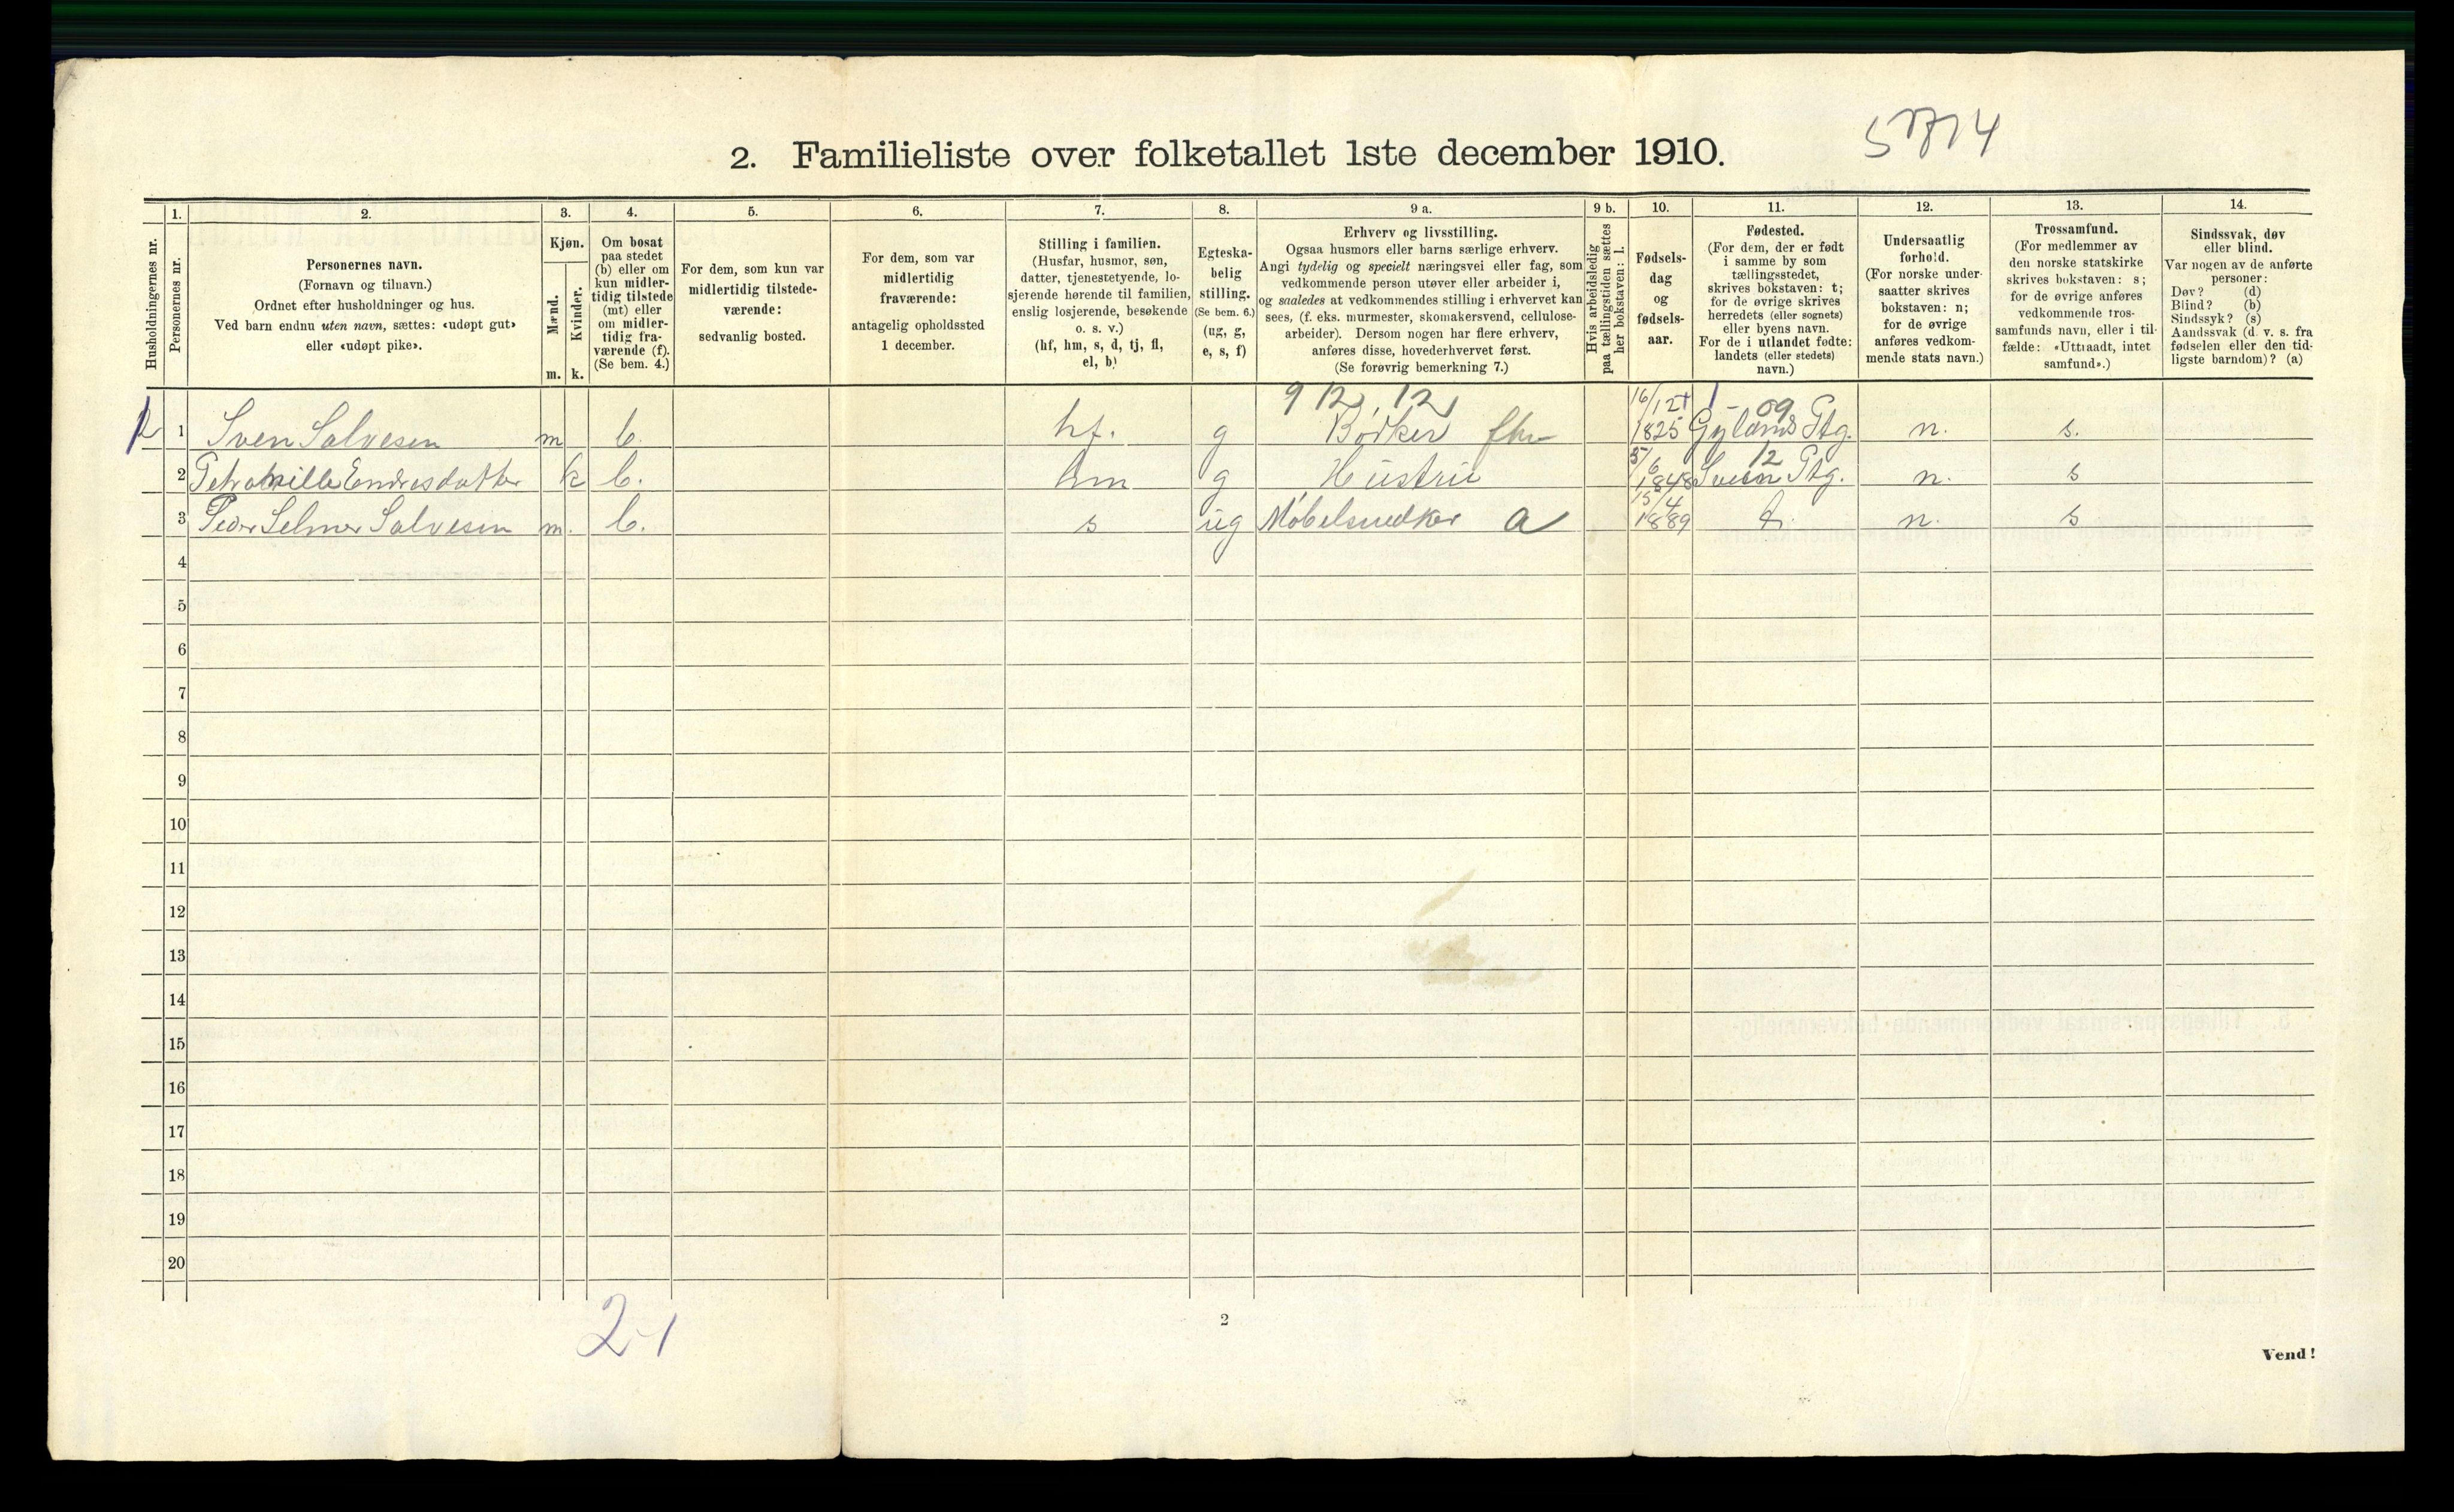 2. Familieliste over folketallet 1ste december 1910.
Husholdningernes nr.
1.
Personernes nr.
2.
Personernes navn.
(Fornavn og tilnavn.)
Ordnet efter husholdninger og hus.
Ved barn endnu uten navn, sættes: «udøpt gut»
eller «udøpt pike».
3.
Kjøn.
Mænd.
m.
Kvinder.
k.
4.
Om bosat
paa stedet
(b) eller om
kun midler-
tidig tilstede
(mt) eller
om midler-
tidig fra-
værende (f).
(Se bem. 4.)
5.
For dem, som kun var
midlertidig tilstede-
værende:
sedvanlig bosted.
6.
For dem, som var
midlertidig
fraværende:
antagelig opholdssted
1 december.
7.
Stilling i familien.
(Husfar, husmor, søn,
datter, tjenestetyende, lo-
sjerende hørende til familien,
enslig losjerende, besøkende
o. s. v.)
(hf, hm, s, d, tj, fl,
el, b)
8.
Egteska-
belig
stilling.
(Se bem. 6.)
(ug, g,
e, s, f)
9 a.
Erhverv og livsstilling.
Ogsaa husmors eller barns særlige erhverv.
Angi tydelig og specielt næringsvei eller fag, som
vedkommende person utøver eller arbeider i,
og saaledes at vedkommendes stilling i erhvervet kan
sees, (f. eks. murmester, skomakersvend, cellulose-
arbeider). Dersom nogen har flere erhverv,
anføres disse, hovederhvervet først.
(Se forøvrig bemerkning 7.)
9 b.
Hvis arbeidsledig
paa tællingstiden sættes
her bokstaven: l.
10.
Fødsels-
dag
og
fødsels-
aar.
11.
Fødested.
(For dem, der er født
i samme by som
tællingsstedet,
skrives bokstaven: t;
for de øvrige skrives
herredets (eller sognets)
eller byens navn.
For de i utlandet fødte:
landets (eller stedets)
navn.)
12.
Undersaatlig
forhold.
(For norske under-
saatter skrives
bokstaven: n;
for de øvrige
anføres vedkom-
mende stats navn.)
13.
Trossamfund.
(For medlemmer av
den norske statskirke
skrives bokstaven: s;
for de øvrige anføres
vedkommende tros-
samfunds navn, eller i til-
fælde: «Uttraadt, intet
samfund».)
14.
Sindssvak, døv
eller blind.
Var nogen av de anførte
personer:
Døv? (d)
Blind? (b)
Sindssyk? (s)
Aandssvak (d. v. s. fra
fødselen eller den tid-
ligste barndom)? (a)
912.12
16/12 1-09
1 Sven Salvesen m b. hf. g Bødker 1825 Gylands Ptg. n. s.
5/6 12
2 Endresdatter k b. hm g Hustru 1848 Ptg. n. s
15/4
3 Peder Selmer Salvesen m. b. s ug Møbelsnedker a 1889 t. n. s
4
5
6
7
8
9
10
11
12
13
14
15
16
17
18
19
20
2-1
2
Vend!